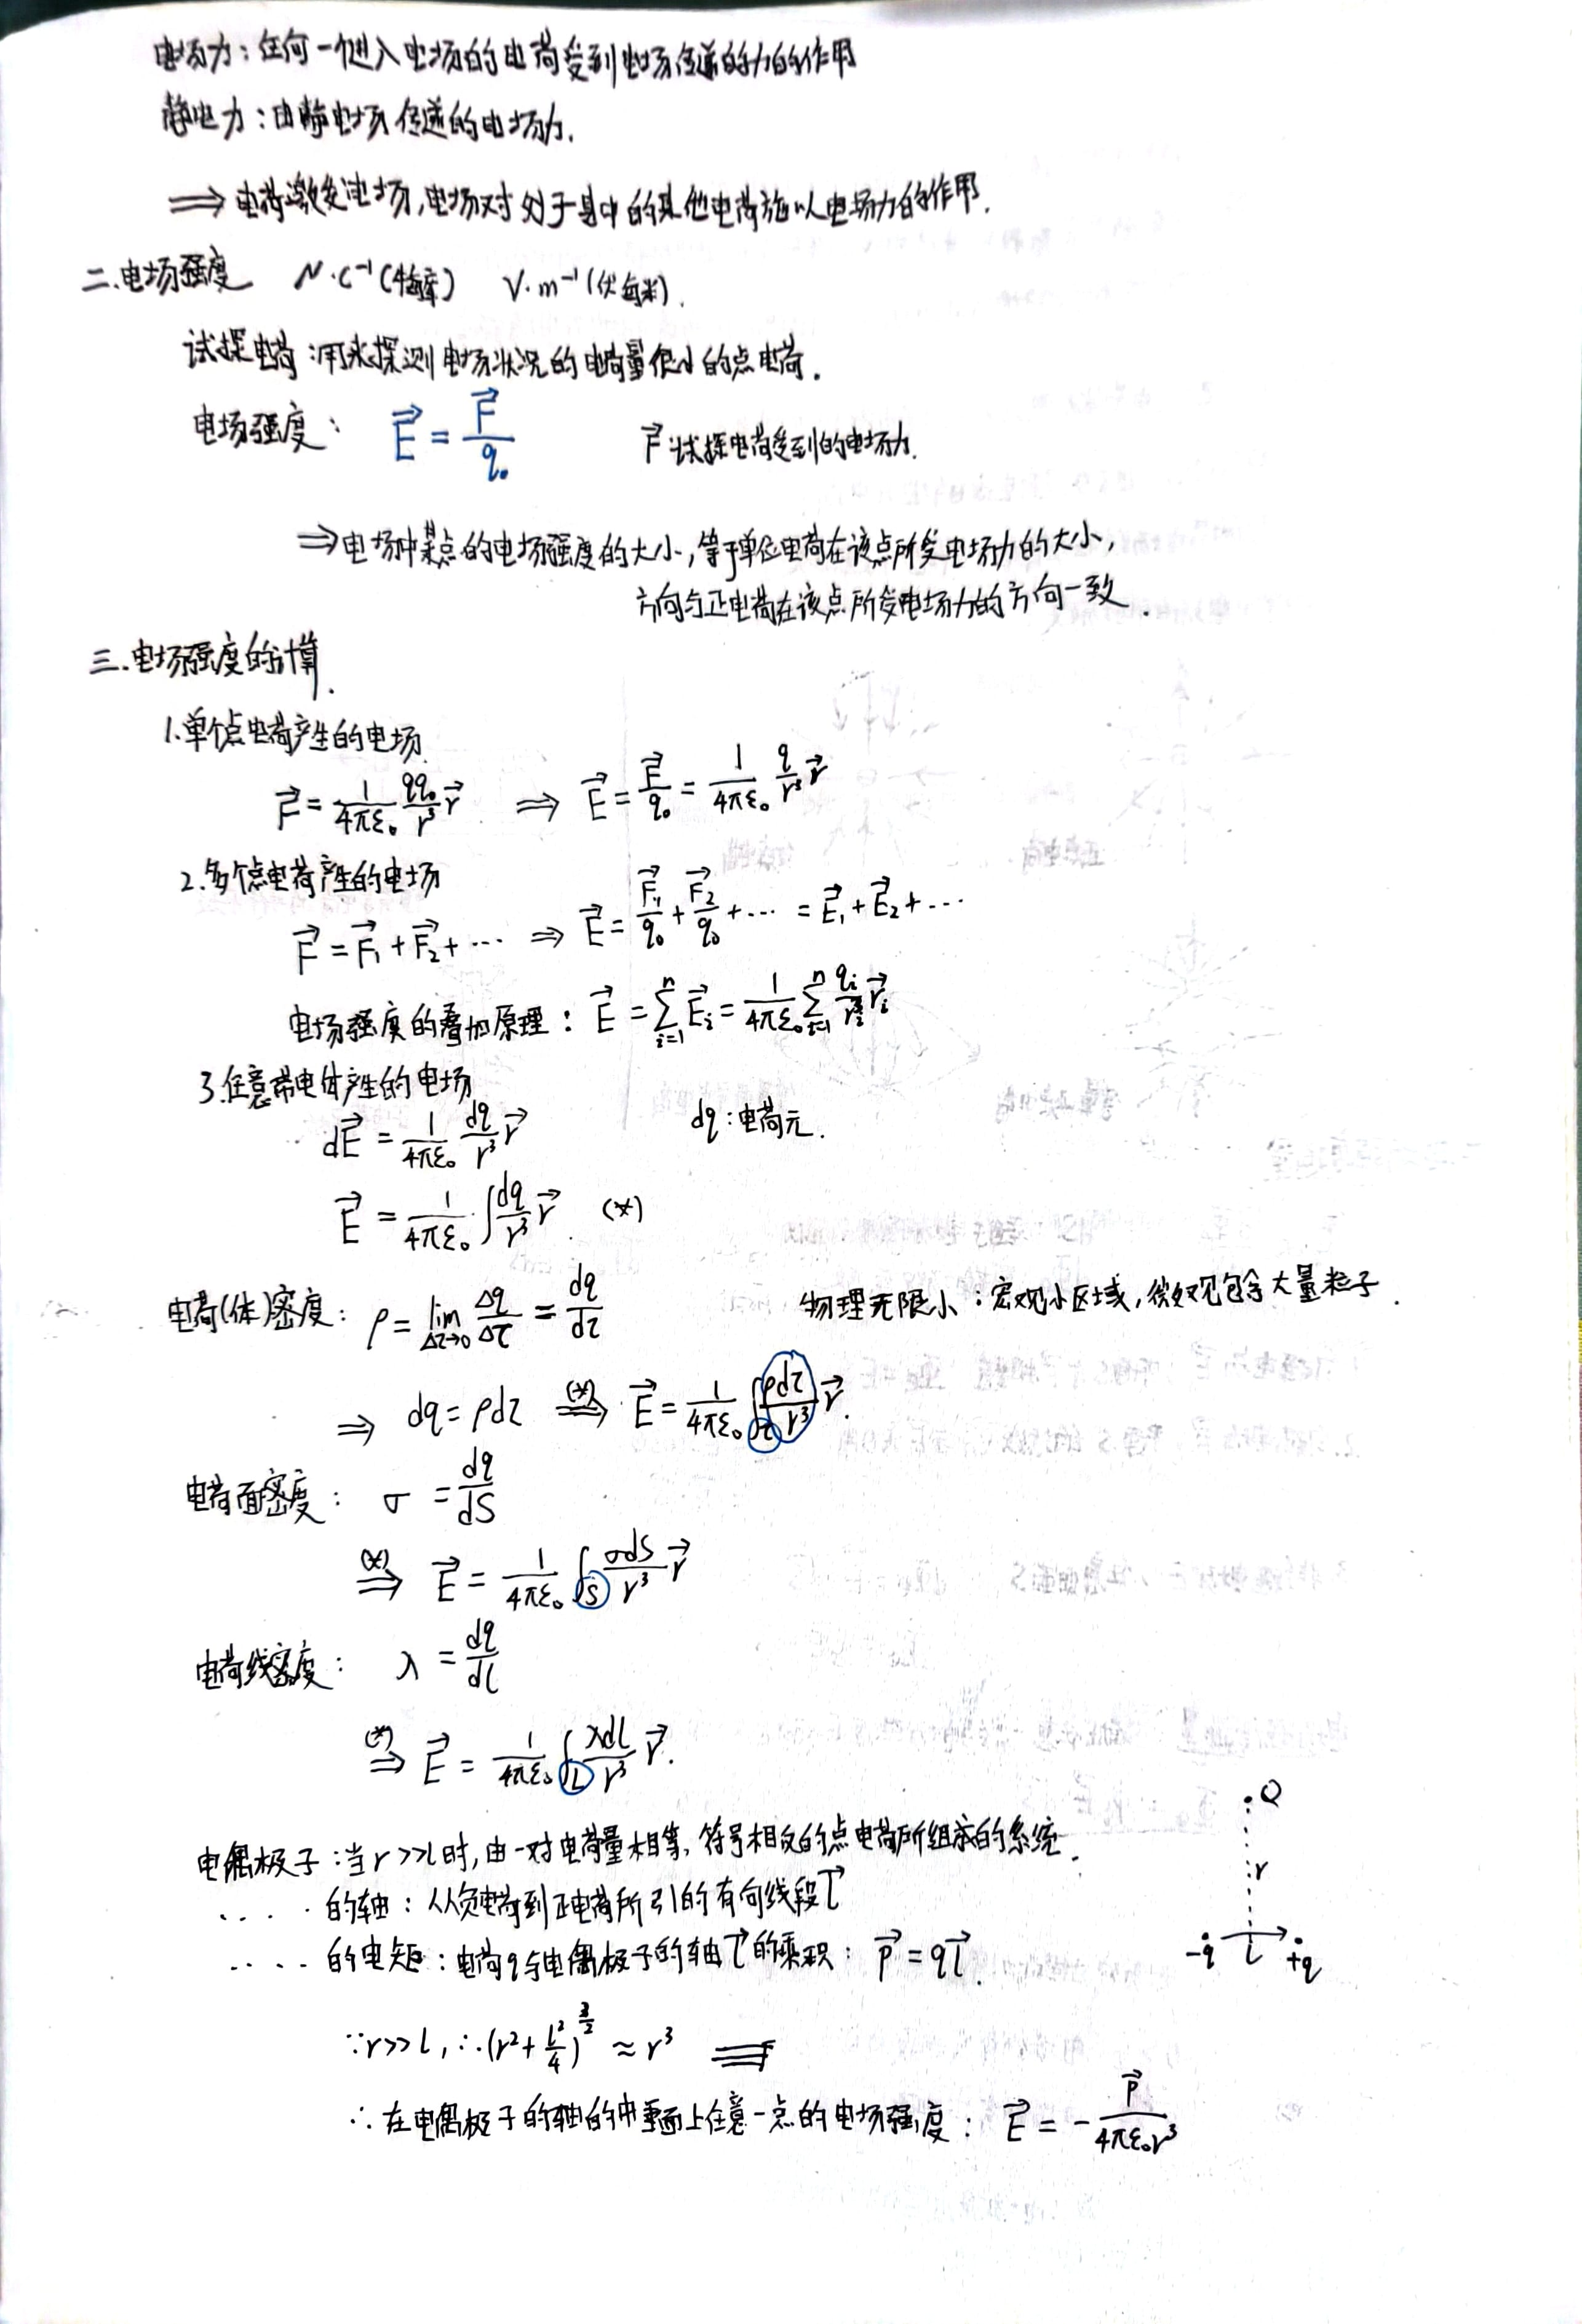 电场力：任何一个进入电场的电荷受到电场传递的力的作用
静电力：由静电场传递的电场力.
⟹ 电荷激发电场,电场对处于其中的其他电荷施以电场力的作用.
二.电场强度 N·C⁻¹(牛每库) V·m⁻¹(伏每米).
试探电荷:用来探测电场状况的电荷量很小的点电荷.
电场强度: E⃗ = F⃗/q₀ F⃗:试探电荷受到的电场力.
⟹电场中某点的电场强度的大小,等于单位电荷在该点所受电场力的大小,
方向与正电荷在该点所受电场力的方向一致.
三.电场强度的计算.
1.单个点电荷产生的电场.
F⃗ = 1/(4πε₀) qq₀/r³ r⃗ ⟹ E⃗ = F⃗/q₀ = 1/(4πε₀) q/r³ r⃗
2.多个点电荷产生的电场
F⃗ = F⃗₁ + F⃗₂ + ··· ⟹ E⃗ = F⃗₁/q₀ + F⃗₂/q₀ + ··· = E⃗₁ + E⃗₂ + ···
电场强度的叠加原理: E⃗ = ∑ᵢ₌₁ⁿ E⃗ᵢ = 1/(4πε₀) ∑ᵢ₌₁ⁿ qᵢ/rᵢ³ r⃗ᵢ
3.任意带电体产生的电场
dE⃗ = 1/(4πε₀) dq/r³ r⃗ dq:电荷元.
E⃗ = 1/(4πε₀) ∫ dq/r³ r⃗ (*)
电荷(体)密度: ρ = lim_{Δτ→0} Δq/Δτ = dq/dτ 物理无限小:宏观小区域,微观包含大量粒子.
⟹ dq = ρdτ (*)⟹ E⃗ = 1/(4πε₀) ∫_τ ρdτ/r³ r⃗.
电荷面密度: σ = dq/dS
(*)⟹ E⃗ = 1/(4πε₀) ∫_S σdS/r³ r⃗
电荷线密度: λ = dq/dl
(*)⟹ E⃗ = 1/(4πε₀) ∫_L λdl/r³ r⃗.
电偶极子:当r>>l时,由一对电荷量相等,符号相反的点电荷所组成的系统.
···· 的轴: 从负电荷到正电荷所引的有向线段l⃗
···· 的电矩:电荷q与电偶极子的轴l⃗的乘积: p⃗ = ql⃗.
Q
r
-q l +q
∵r>>l,∴(r²+l²/4)^(3/2) ≈ r³
∴在电偶极子的轴的中垂面上任意一点的电场强度: E⃗ = - p⃗/(4πε₀r³)